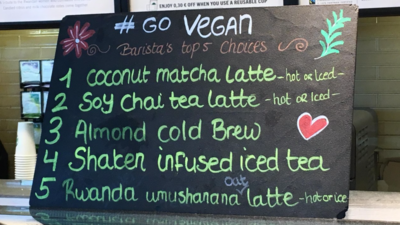 ENJOY 0.30 € OFF WHEN YOU USE A REUSABLE CUP
# GO VEGAN
Barista's top 5 choices
1 coconut matcha latte - hot or Iced -
2 Soy chai tea latte - hot or Iced -
3 Almond cold Brew
4 Shaken infused iced tea
5 Rwanda umushanana oat latte - hot or ice